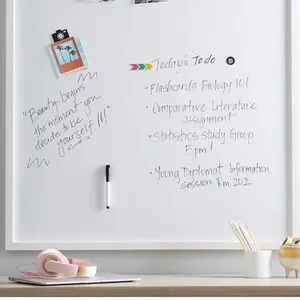 "Beauty begins
the moment you
decide to be
yourself!!!"
Today's To do
• Flashcards Biology 101
• Comparative Literature
assignment
• Statistics study Group
5pm!
• Young Diplomat Information
session Rm 202